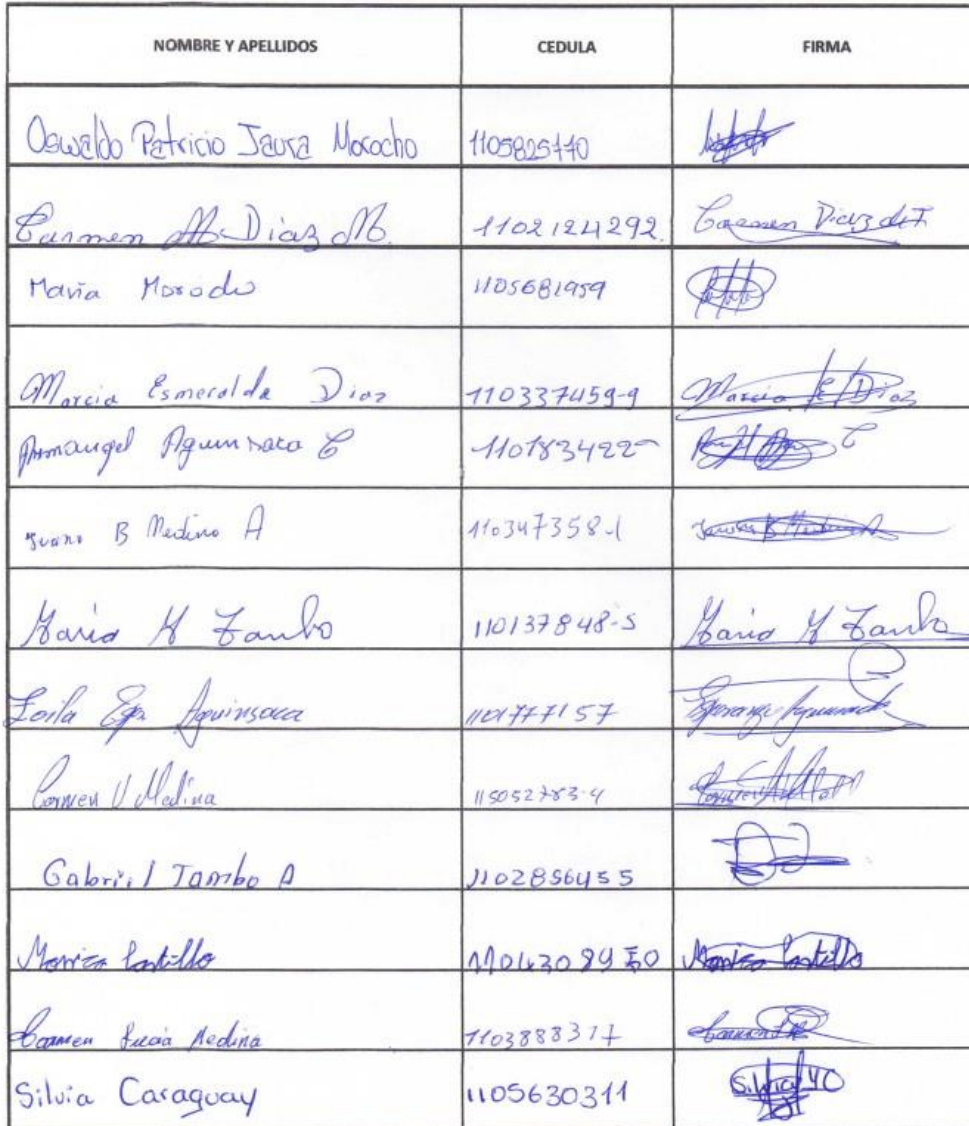 NOMBRE Y APELLIDOS CEDULA FIRMA
Oswaldo Patricio Jaura Morocho 1105825440
Carmen M. Diaz M. 1102124292. Carmen Diaz de T.
Maria Morocho 1105681959
Marcia Esmeralda Diaz 110337459-9 Marcia E Diaz
Armangel Aguinsaca C
B Medina A 110347358-1
Maria M Tambo 110137848-5 Maria M Tambo
Zoila Esp. Aguinsaca 1101777157 Esperanza Aguinsaca
Carmen V Medina 115052783-4
Gabriel Tambo A 1102856455
Monica Castillo Monica Castillo
Carmen Lucia Medina 1103888317
Silvia Caraguay 1105630311 Silvia